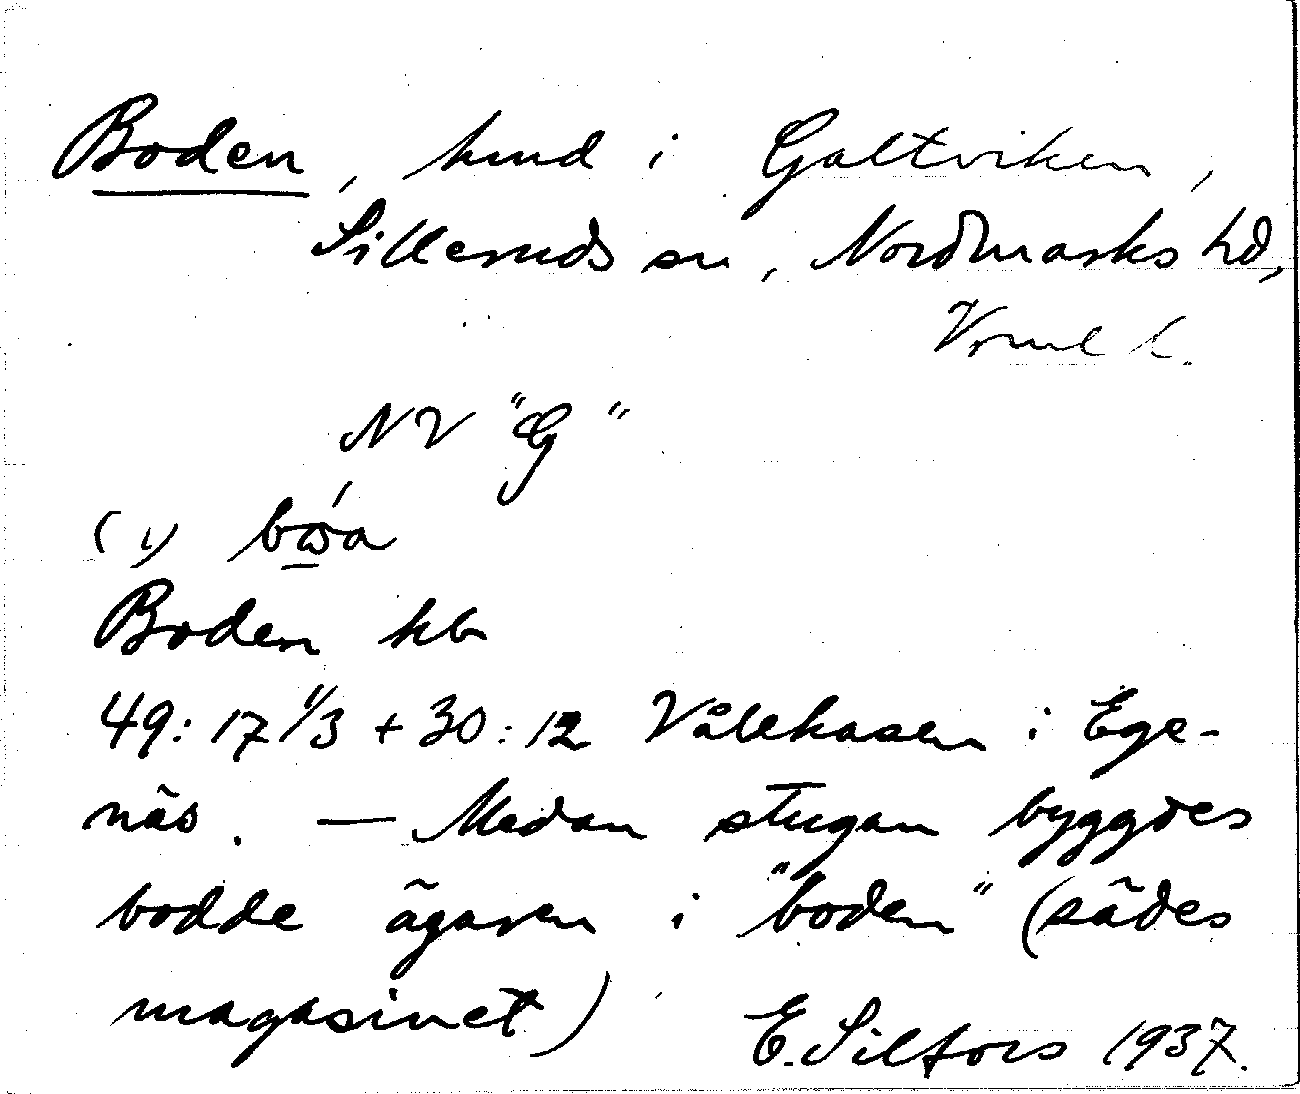 Boden, hmd i Galtviken,
Silleruds sn, Nordmarks hd,
Vrml l.
NV "G"
(i) bώ̲a
Boden kbr
49:17 1/3 + 30:12 Vålekasen i Ege-
näs. — Medan stugan byggdes
bodde ägaren i "boden" (sädes
magasinet)
E. Silfors 1937.